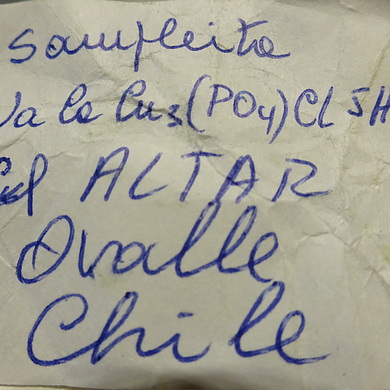 Sampleita
Na Ca Cu₅(PO₄)Cl 5H
ALTAR
Ovalle
Chile